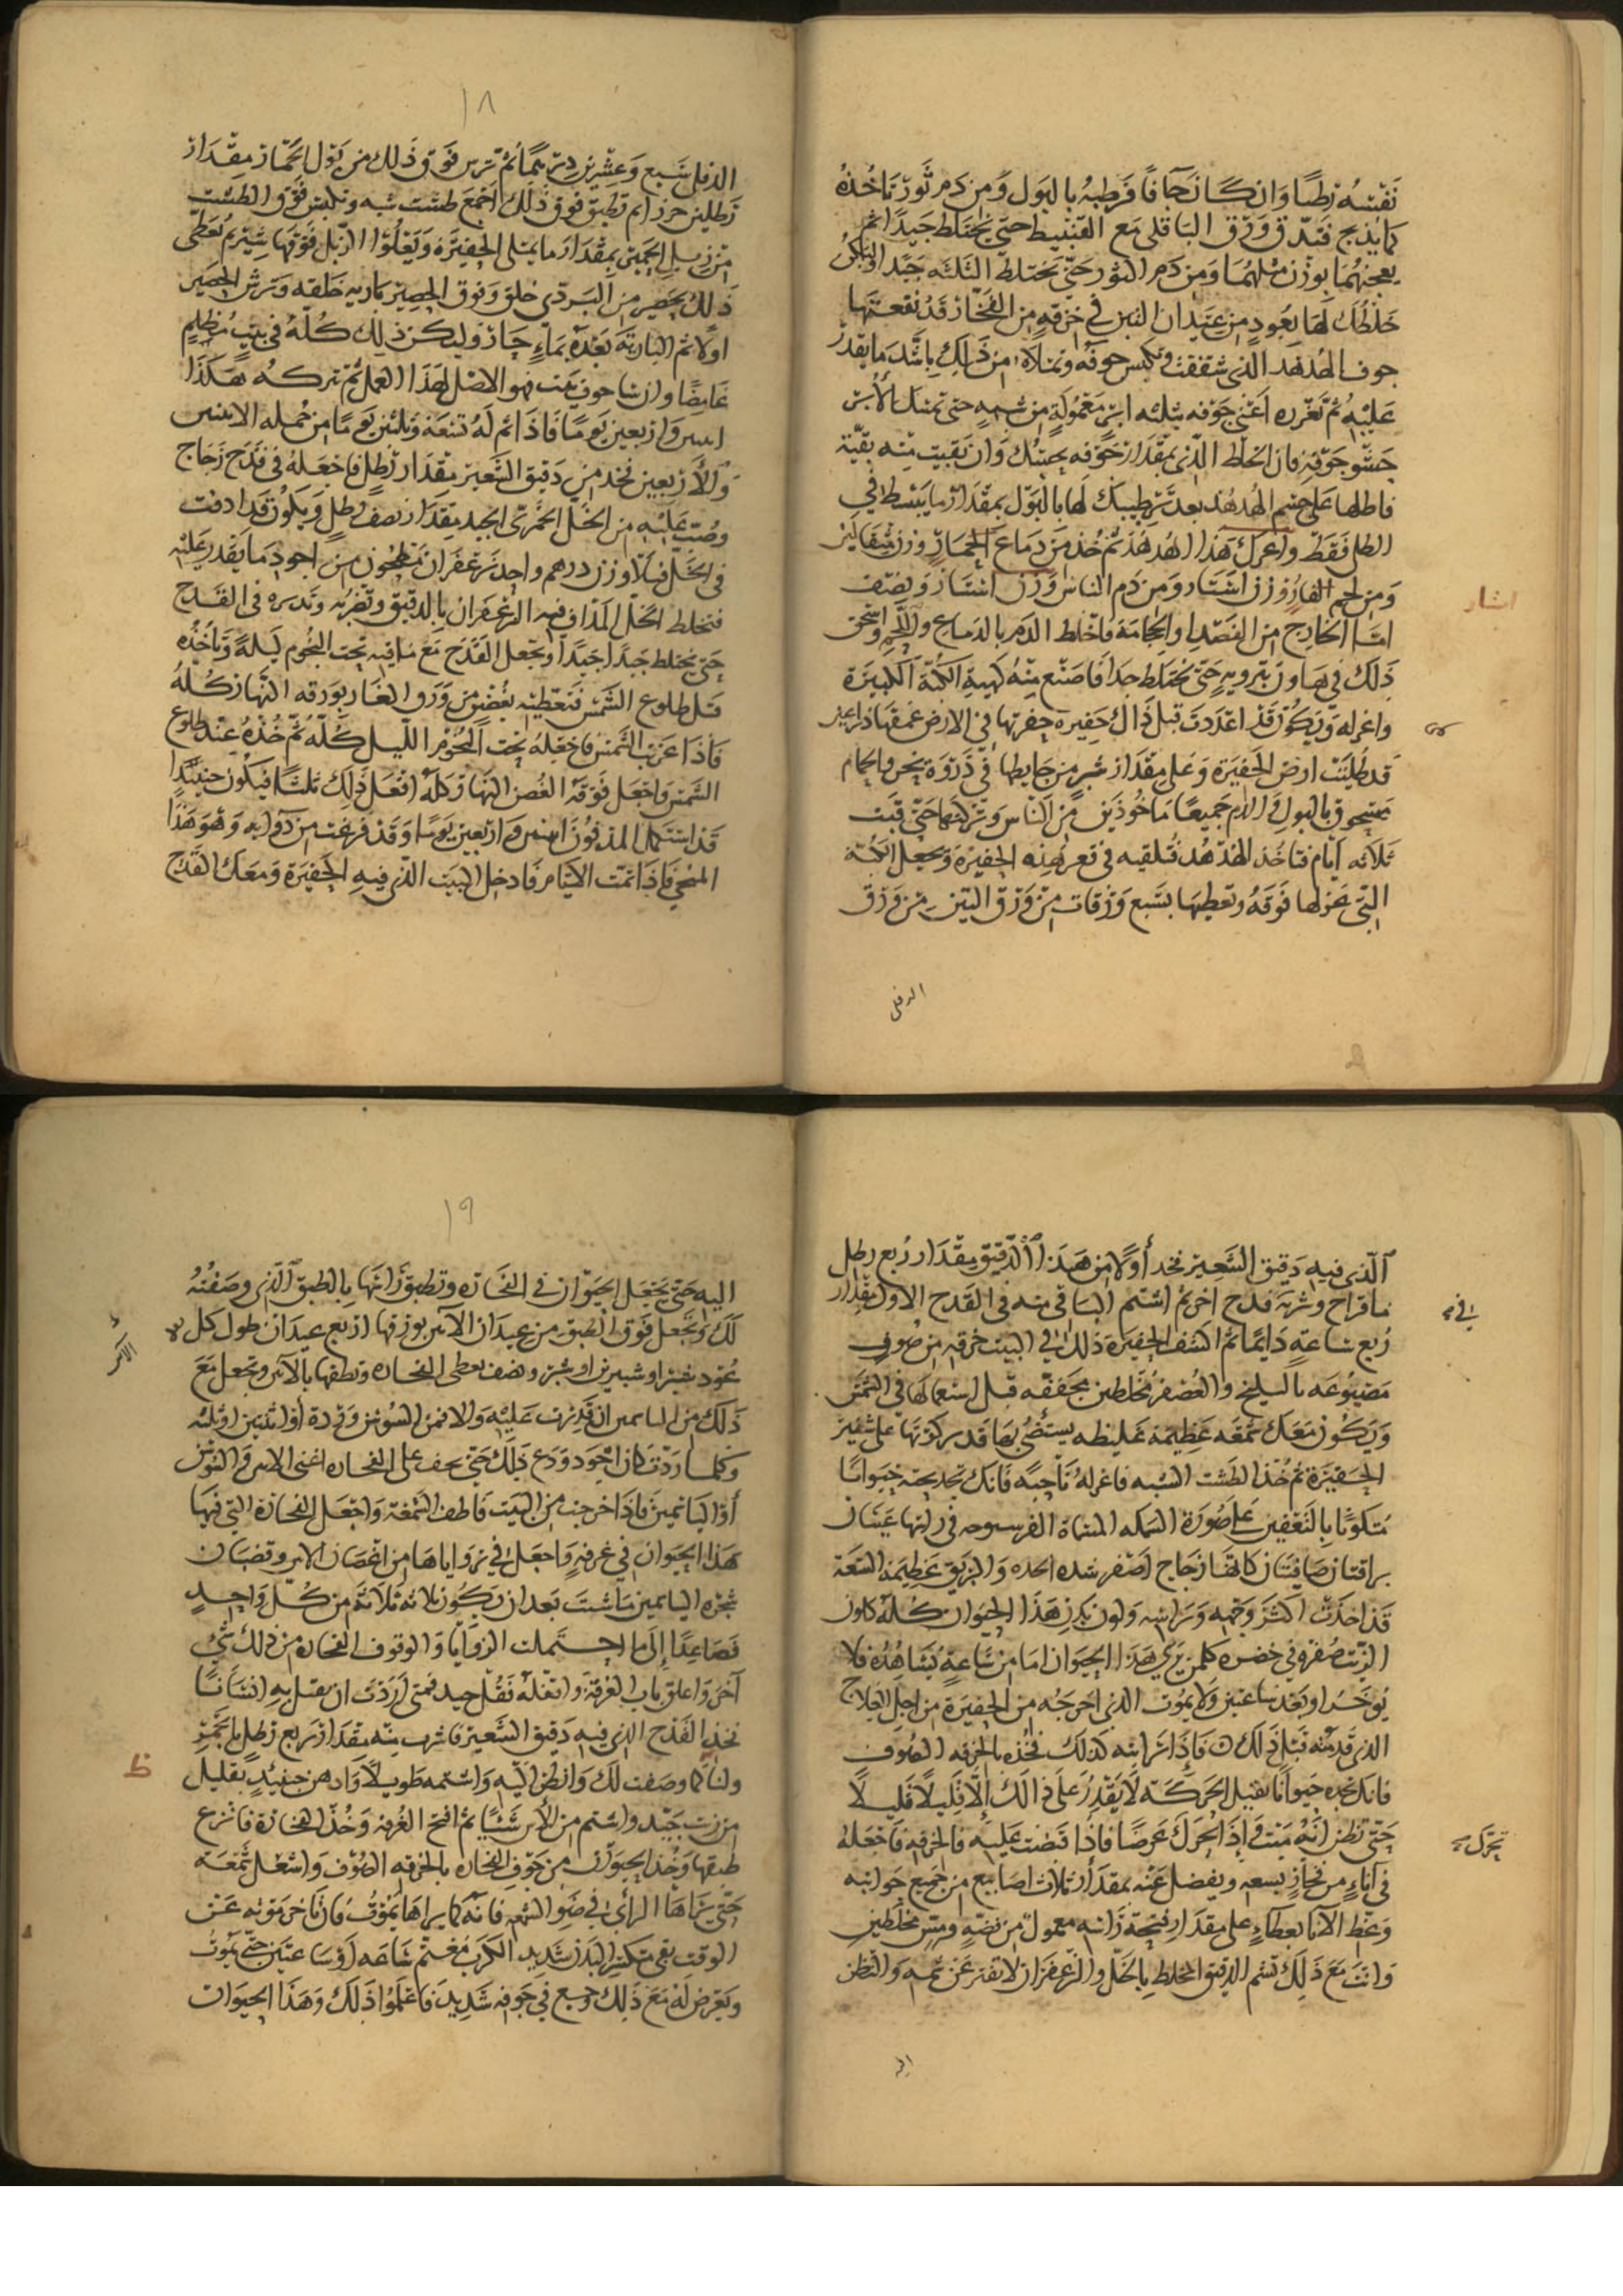 نَفْسُه رَطبًا وَان كَانَ جَافًا فَرطبهُ بالبَول وَمن دَم ثَور تاخُذهُ
كما يذبح فتدق وَرَق الباقلى مَع القنبيط حتى يختلط جَيدًا ثم
يعجنهُمَا بوزن مثلهُمَا وَمن دَم الثور حَتى يختلط الثلثه جَيدًا وليكن
خلطك لهَا بعُودٍ من عيدان التين في خزفةٍ من الفخار قد نقعتهَا
جوف الهُدهد الذى شققت وتكبس جوفه وتملاه من ذلك باشد ما يقدر
عَليه ثم تغرزه اعنى جَوفه بثلثه ابر مَعمُولةٍ من شبهٍ حتى تمسك الابر
حَشو جَوفه فان الخلط الذى بمقدار جَوفه يجيئك وَان بقيت منه بقية
فاطلها عَلى جسم الهُدهُد بعد ترطيبك لهَا بالبَول بمقدار ما ينبسط فى
الطل فقط واعرك هذا الهُدهُد ثم خُذ من دمَاع الحِمَار وزن مثقالين
وَمن لحم الفار وزن استار وَمن دَم الناس وَزن استار ونصف
استار
اما الخارج من الفصد او الحجامة فاخلط الدم بالدماع واللحم واسحق
ذلك فى هاون برويه حَتى يختلط جدا فاصنع منه كهيئة الكبة الكبيرة
واعزله وَيكون قد اعددت قبل ذالك حفيرة حفرتها فى الارض عمقها ذراعين
قد طُليت ارض الحَفيرة وَعَلى مقدار شبر من حايطها
معجون بالبول وَالدم جميعًا مَاخُوذين من الناس وَتركتهَا حَتى قبت
ثلاثه ايام فتاخُذ الهُدهُد فتلقيه فى قعر هذه الحفيرة وتجعل الكبة
التى عزلها فوقهُ وتغطيهَا بسَبع وَرَقات من وَرَق التين من وَرَق
الدفلى
١٨
الدفلى سَبع وَعشرين درهمًا ثم ترس فَوق ذلك من بَول الحمار مقدار
رَطلين حرز ثم تطبق فوق ذلك اجمع طشت شبه وتكبس فَوق الطشت
من زبل الحمير بمقدار مَا يمتلى الحفيره وَيَعلُوا الزبل فوقهَا شبرثم تغطى
ذلك بحصير من البَردى خلق وَفوق الحصير باريه خلقه وَترش الحصير
اولا ثم الباريَة بعده بماءٍ حَار وليكن ذلك كُلهُ فى بَيتٍ مُظلم
غامِضًا وان شا جوف بيت فهو الاصل لهَذا العمل ثم تتركه هكذَا
اثنين واربعين يَومًا فاذا تم لهُ تسعَة وَثلثين يومًا من جُمله الاثنين
وَالاربعين فخذ من دَقيق الشعير مقدار رَطل فاجعَلهُ فى قدَح زجَاج
وصُبّ عَليه من الخل الخمرى الجيد مقدار نصف رطلٍ وَيكون قد ادفت
فى الخل قبلاً وزن درهم واحد زعفران مَطحُون من اجود مَا يقدر عَليه
فتخلط الخل المذاف فيه الزعفران بالدقيق وتضربه وتديره فى القَدح
حَتى يختلط جَيدًا جيدًا وتجعل القَدَح مَع مَا فيه تحت النجُوم ليلةً وَتاخُذه
قبل طلوع الشمس فتغطيه بغُصن من وَرق الغار بورَقه النهار كُلهُ
فاذا غربت الشمس فاجعَله تحت النجُوم الليل كُله ثم خُذهُ عند طلوع
الشمس واجعَل فوقهُ الغُصن النهَار كله افعَل ذلك ثلثًا فيكون حينيذٍ
قد استكمل المدفُون اثنين وَاربعين يَومًا وَقد فرغت من دَوايه وَهُوَ هَذا
المنحى فاذا تمت الايام فادخل البيت الذى فيهِ الحَفيرة وَمعَك القدح
الذى فيه دَقيق الشعير فخذ أولًا من هَذا الدقيق مقدار رُبع رطل
مَا قراح وشربه قدح اخر ثم اشتم الباقى منه فى القدح الاول مقدار
رُبع سَاعةٍ دَايمًا ثم اكشف الحفيرة ذلك فى البيت خرقه من صُوف
فى
مَصبُوغه بالسليخ والعُصفر مُخلطين مجففه قبل استعمالها فى الشمس
وَيكون مَعَك شمعَه عَظيمَة غليظه يستضئ بهَا قد ركزتهَا على شفير
الحفيرة ثم خُذ الطشت الشبه فاعزلهُ نَاحيَه فانك تجد تحته حَيوانًا
مُتكونًا بالتعفين عَلى صُورَة السمكه المسماة الفرسوحه فى راسها عَينان
براقتان صَافيتَان كانهمَا زجَاج اصفر شده الحده وَالبريق عَظيمَة السَعَة
قد اخذت اكثر وَجهه وَراسه وَلون بَدن هَذا الحَيوان كُله كلون
الزيت صُفره فى خضره كلمن يرى هَذا الحيوان امَا من سَاعةٍ يُشَاهِده فلا
يُوخر او بَعد سَاعتين وَلا يمُوت الذى اخرجهُ من الحفيرة من اجل العلاج
الذى قدمتهُ قبل ذلك ن فاذا رَايته كذلك فخُذه بالخرقه الصُوف
فانك تجده حيوانًا ثقيل الحركَة لَا يَقدِرُ عَلى ذالك إلا قليلًا قليلًا
حَتى تظن انهُ مَيت فاذا اتحرك عَرضًا فاذا قبضت عَليه فالخرقه فاجعَلهُ
تحرّك
فى اناءٍ من فخارٍ يسعه ويفضل عنه بمقدَار ثلاث اصَابع من جَميع جوانبه
وَغط الانا بعطاءٍ على مقدَار فتحة رَاسه مَعمول من فضةٍ ومس مخلطين
وانت مَعَ ذلك تشم الدقيق المخلط بالخل والزعفران لا تفتر عَن شمه والنظر
اليه
١٩
اليه حَتى تجعَل الحيوَان فى الفخاره وتطبق رَاسهَا بالطبق الذى وصَفتهُ
لَك وَتجعل فوق الطبق من عيدان الآس بورقها اربع عيدَان طول كل
الآس
عُود شبر او شبرين او شبر ونصف يغطى الفخاره وتطفها بالآس وتجعل مَعَ
ذلك من الياسمين ان قدرت عَليه وَالا فمن السُوسن وَردة أو اثنين او ثلثه
وَكلما زدت كان اجود وَدع ذلك حَتى يجف على الفخاره اعنى الاس وَالسُوسن
أو اليَاسَمين فاذا خرجت من البَيت فاطف الشمعَة وَاجعَل الفخارة التى فيهَا
هَذا الحَيوان فى غرفهٍ وَاجعَل فى زوَاياهَا من اغصَان الاس وَقضبَان
شجره الياسَمين مَا شئت بَعد ان يَكُون ثلاثه ثلَاثةَ من كُل وَاحِدٍ
فصَاعِدًا إلى مَا احتَملت الزوَايَا وَالوقوف الفخاره من ذلك شَئ
آخَر وَاغلق باب الغرفة واقفله بقُفل حيد فمتى أرَدت ان يقتل بهِ انسَانًا
فخذ القدح الذى فيه دَقيق الشَعير فاشرب منه مقدَار رَبع رطلٍ ما
كما وصفت لَك وَانظر اليه وَاشتمه طَويلاً وَادهن حينئذٍ بقليل
ظ
من زيت جَيد واشتم من الآس شَيئًا ثم افتح الغُرفه وَخُذ الفخارة فانزع
طبقهَا وَخذ الحيوَان من جَوف الفخاره بالخرقه الصُوف وَاشعل شمعَه
حَتى يرَاهَا الرأى فى ضَو الشمعه فانه كما يراهَا يَمُوت فان تاخر مَوته عَن
الوقتِ بقى مُتكسّر البَدن شَديد الكَرب مُغتم سَاعَه أو سَاعتين حَتى يَمُوت
وَيَعرض لهُ مَعَ ذلك وَجع فى جَوفه شَدِيد فاعلمُوا ذلك وَهَذا الحيَوان